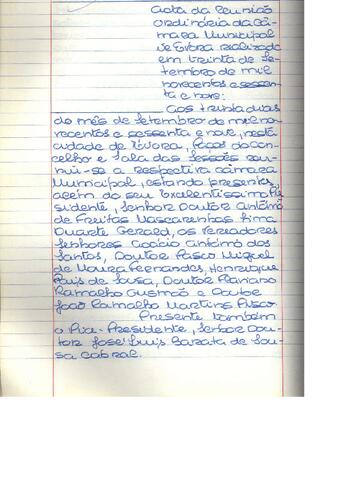 Acta da reunião
ordinária da Câ-
mara Municipal
de Évora realizada
em trinta de Se-
tembro de mil
novecentos e sessen-
ta e nove:
Aos trinta dias
do mês de Setembro de mil no-
vecentos e sessenta e nove, nesta
cidade de Évora, Paços do Con-
celho e Sala das Sessões reu-
niu-se a respectiva Câmara
Municipal, estando presentes,
além do seu Excelentíssimo Pre-
sidente, Senhor Doutor António
de Freitas Mascarenhas Lima
Duarte Gerard, os vereadores
Senhores António dos
Santos, Doutor Vasco Miguel
de Moura Fernandes, Henrique
de Sousa, Doutor
Ramalho Gusmão e Doutor
João Ramalho Martins
Presente também
o Vice-Presidente, Senhor Dou-
tor José Luís Barata de Sou-
sa Cabral.